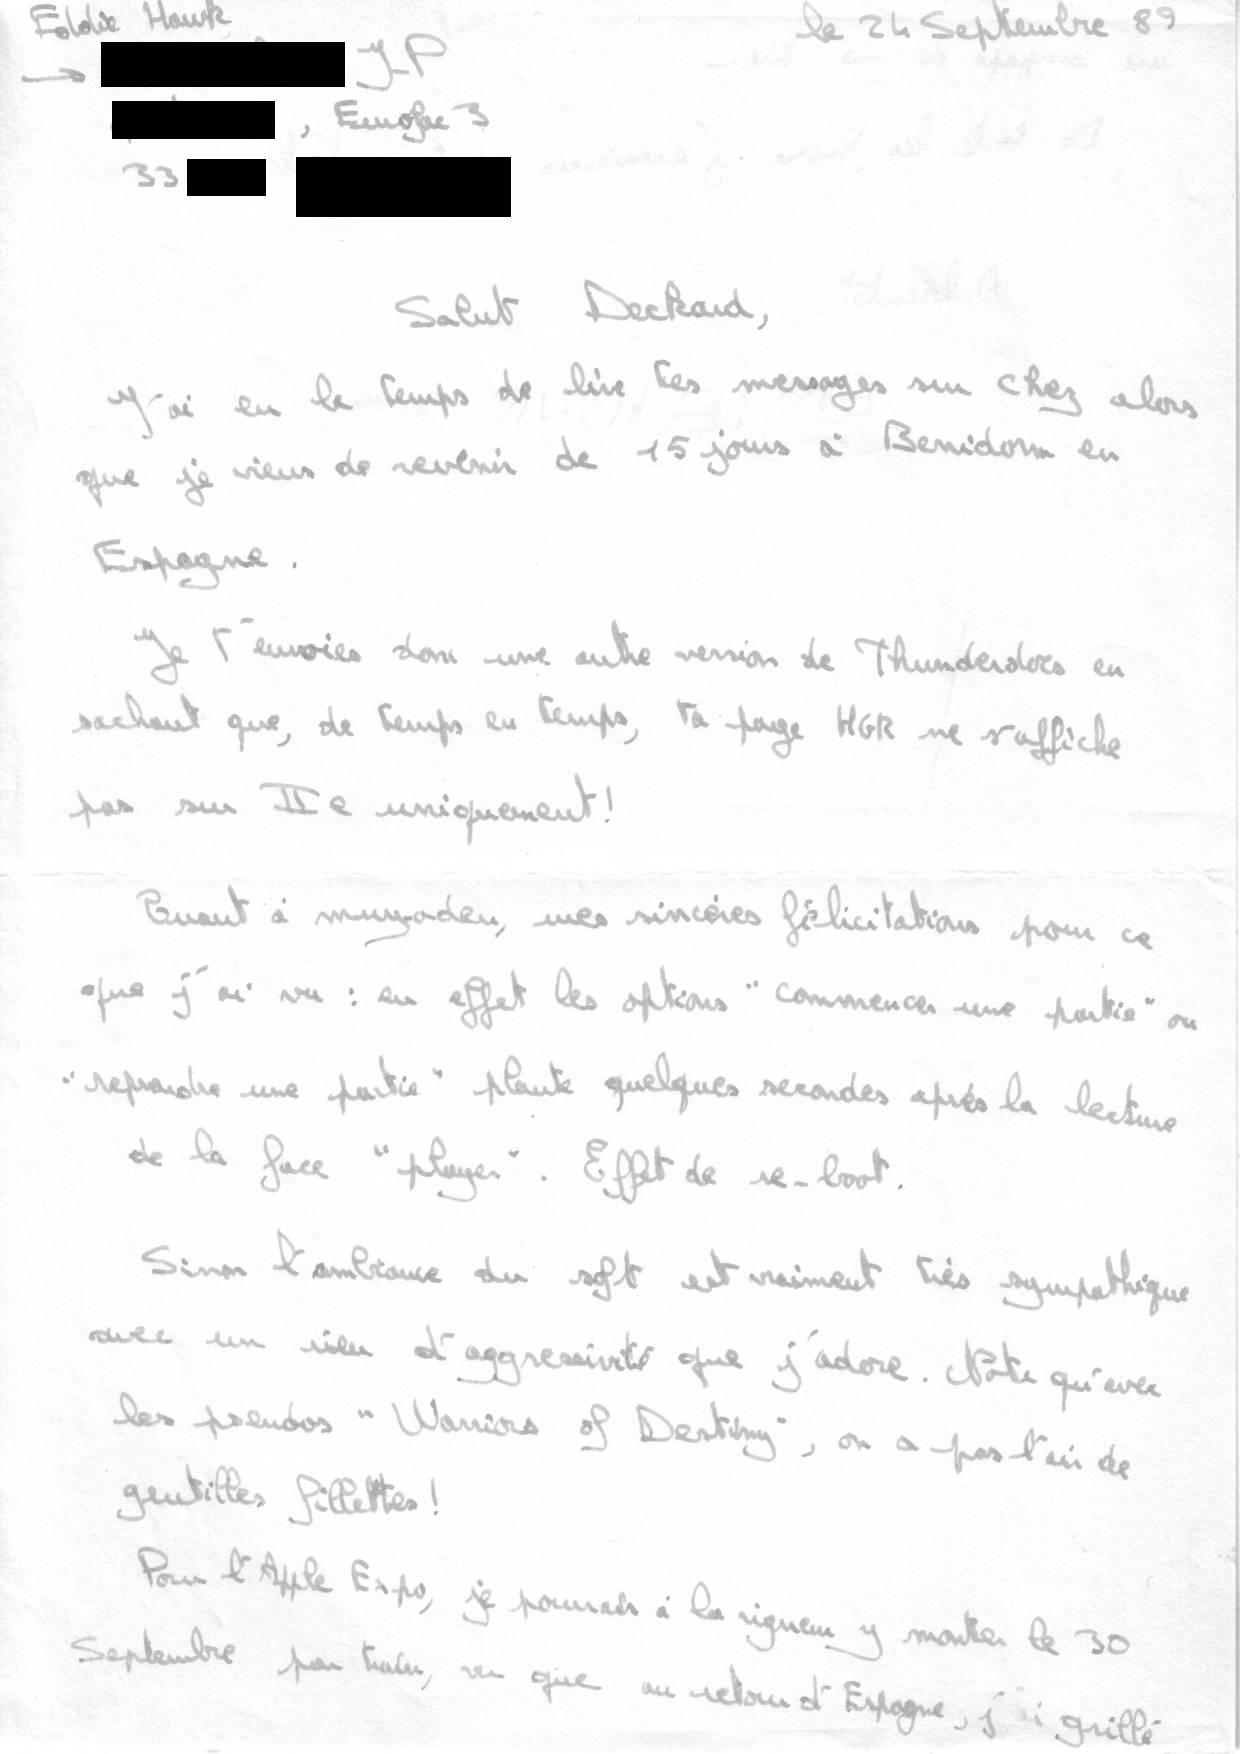 Eddie Hawk
le 24 Septembre 89
→ J-P
, Europe 3
33
Salut Deckard,
J'ai eu le temps de lire tes messages sur Chez alors
que je viens de revenir de 15 jours à Benidorm en
Espagne.
Je t'envoies donc une autre version de Thunderdocs en
sachant que, de temps en temps, ta page HGR ne s'affiche
pas sur IIe uniquement!
Quant à , mes sincères félicitations pour ce
que j'ai vu : en effet les options "commencer une partie" ou
"reprendre une partie" plante quelques secondes après la lecture
de la face "player". Effet de re-boot.
Sinon l'ambiance du soft est vraiment très sympathique
avec un rien d'aggressivité que j'adore. Note qu'avec
les pseudos "Warriors of Destiny", on a pas l'air de
gentilles fillettes!
Pour l'Apple Expo, je pourrais à la rigueur y monter le 30
Septembre par train, vu que au retour d'Espagne, j'ai grillé